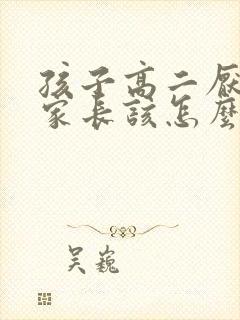 孩子高二厭
家長該怎麼
吴巍